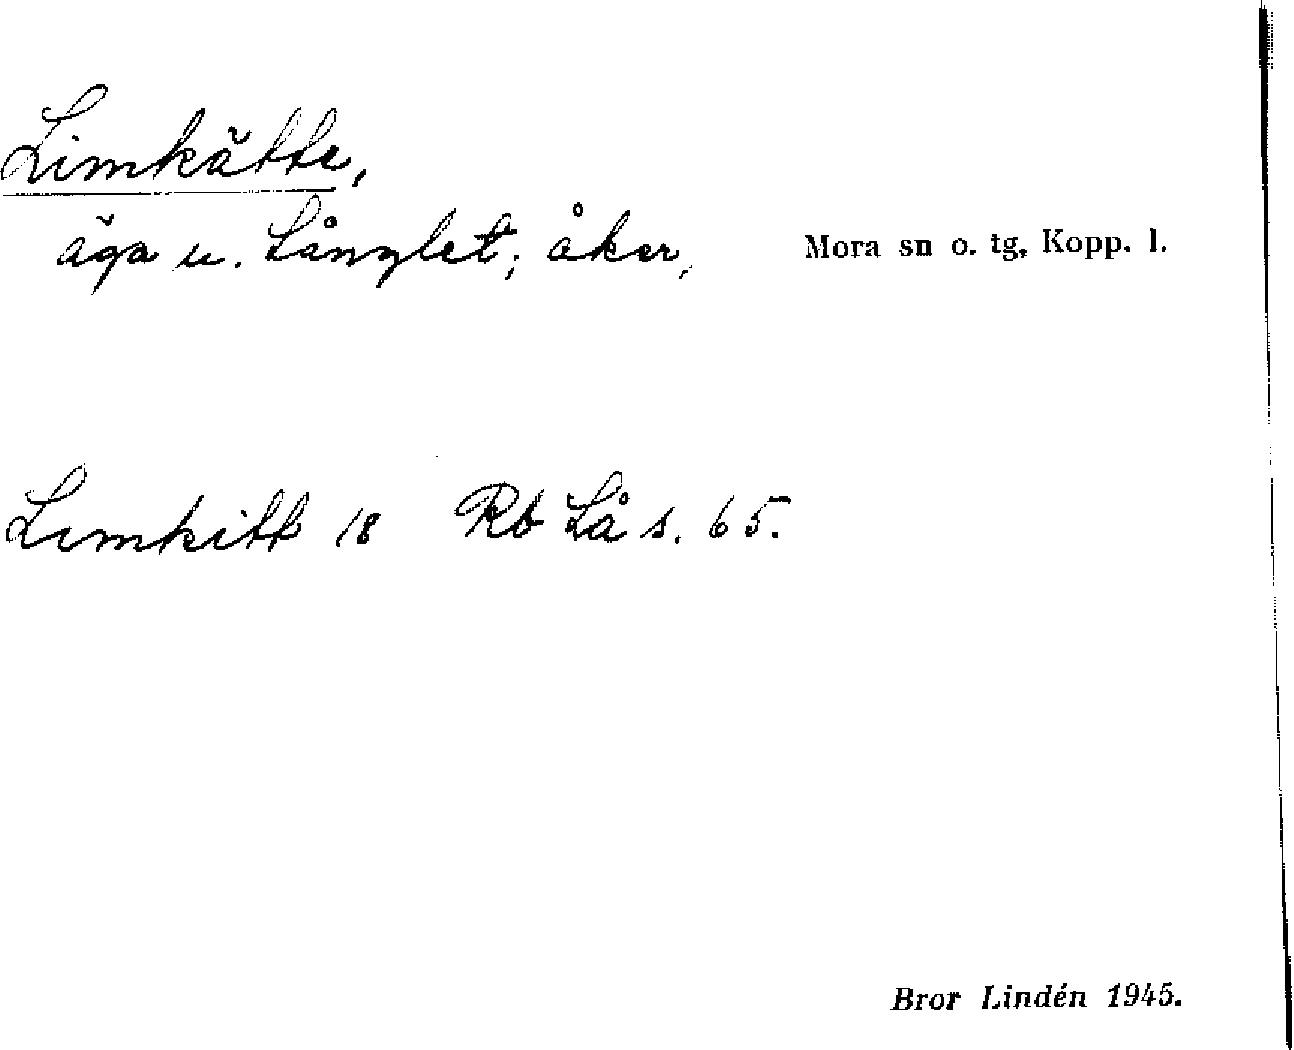 Limkätte,
äga u. Långlet; åker,
Mora sn o. tg, Kopp. l.
Limkitt 18 Rb Lå s. 65.
Bror Lindén 1945.